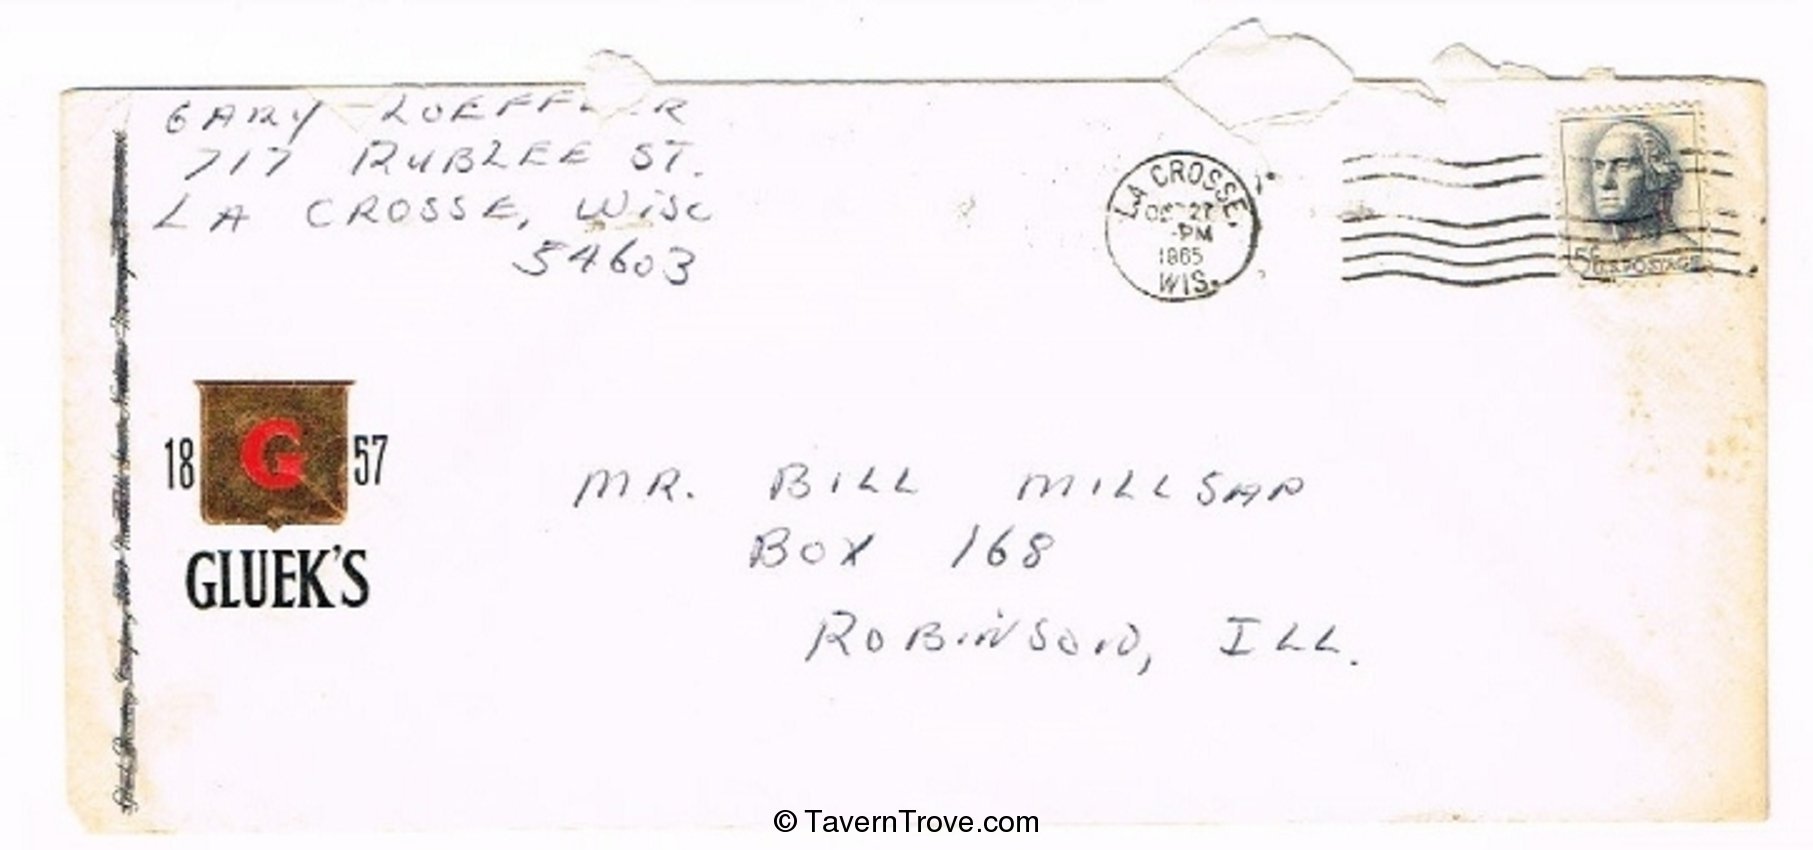 GARY LOEFFLER
717 RUBLEE ST.
LA CROSSE, WISC
54603
LA CROSSE,
OCT 27
-PM
1965
WIS.
5¢ U.S. POSTAGE
18 G 57
GLUEK'S
MR. BILL MILLSAP
BOX 168
ROBINSON, ILL.
© TavernTrove.com